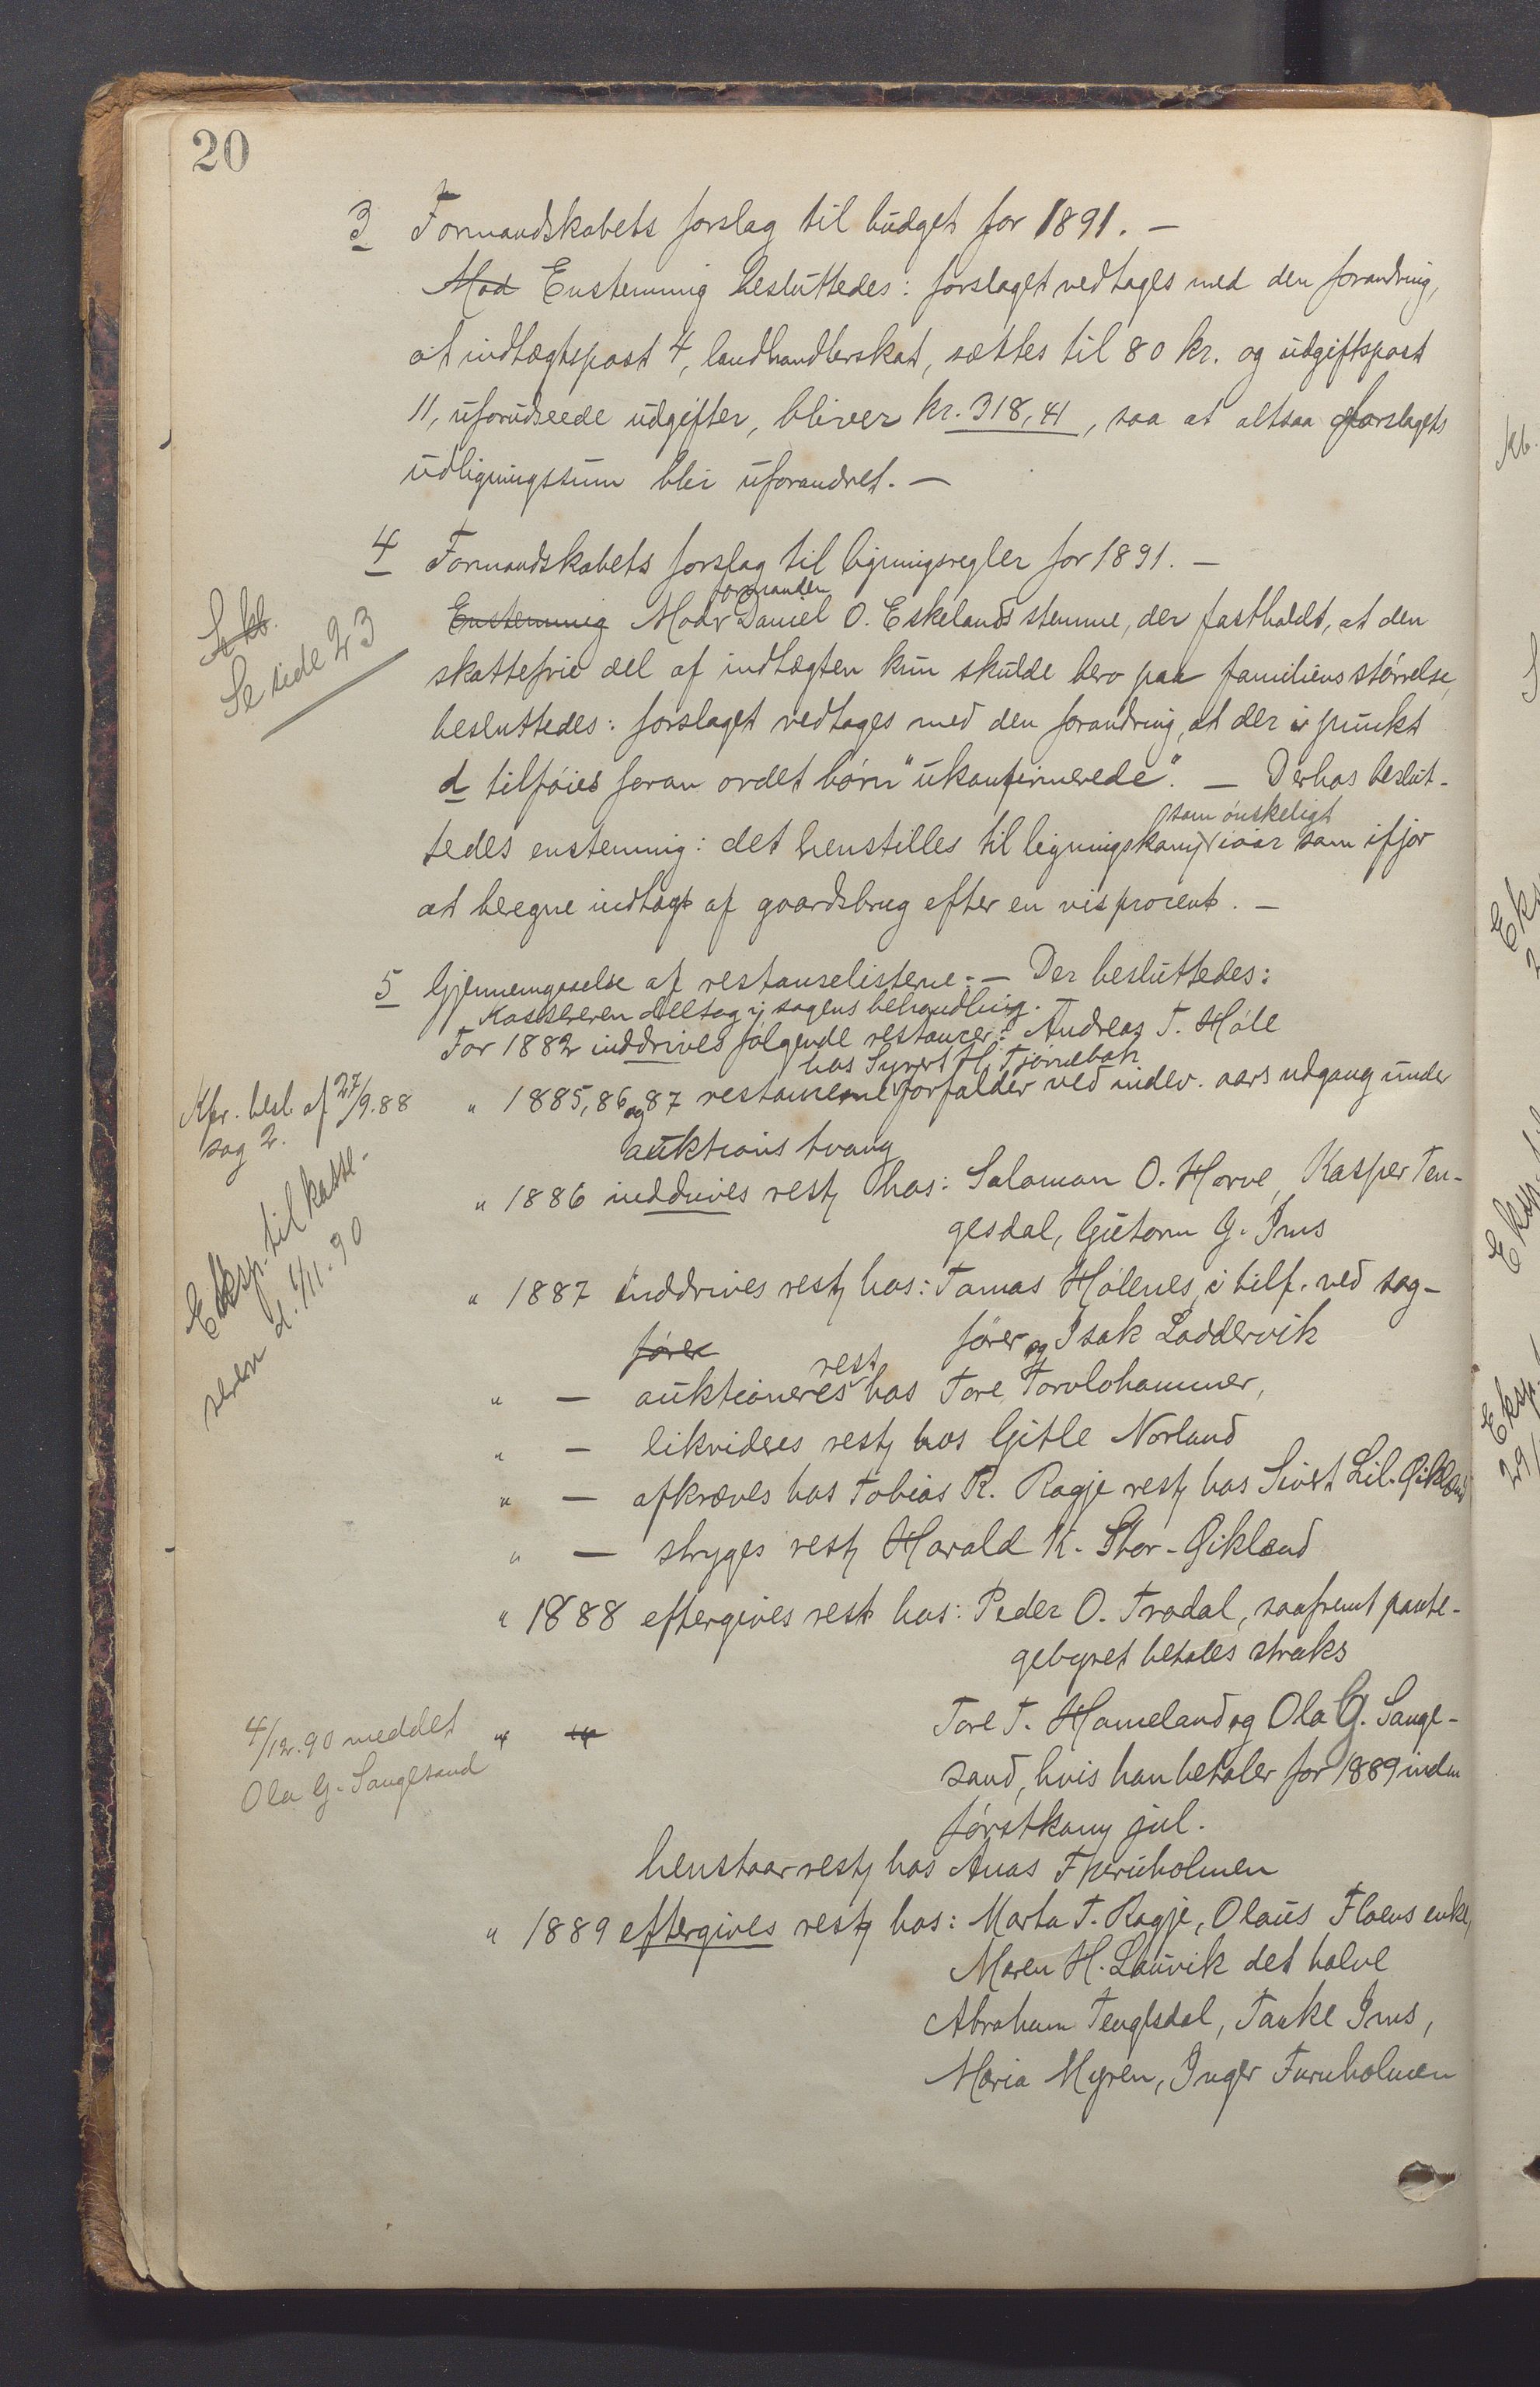 20
3 Formandskabets forslag til budget for 1891. —
Mod Enstemmig besluttedes: forslaget vedtages med den forandring,
at indtægtspost 4, landhandlerskat, sættes til 80 kr. og udgiftspost
11, uforudseede udgifter, bliver kr. 318,41, saa at altsaa forslagets
udligningssum blir uforandret. —
4 Formandskabets forslag til ligningsregler for 1891. —
formanden
Enstemmig Mod Daniel O. Eskelands stemme, der fastholdt, at den
Se side 23
skattefrie del af indtægten kun skulde bero paa familiens størrelse,
besluttedes: forslaget vedtages med den forandring, at der i punkt
d tilføies foran ordet børn "ukonfirmerede". — Derhos beslut-
som ønskeligt
tedes enstemmig: det henstilles til ligningskom iaar som ifjor
at beregne indtægt af gaardsbrug efter en vis procent. —
5 Gjennemgaaelse af restanselistene. — Der besluttedes:
Kassereren deltog i sagens behandling.
For 1882 inddrives følgende restancer: Andreas T. Høle
hos Syvert H. Tjørnebak
Kfr. besl. af 27/9.88
sag 2.
" 1885, 86 og 87 restancerne forfalder ved indev. aars udgang under
auktions tvang
" 1886 inddrives rest hos: Salomon O. Horve, Kasper Ten-
gesdal, Gutorm G. Ims
Eksp. til kasse-
reren d. 1/11.90
" 1887 inddrives rest hos: Tomas Hølenes, i tilf. ved sag-
fører fører og Isak Loddervik
rest
" — auktioneres hos Tore Torvlohammer,
" — likvideres rest hos Gitle Norland
" — afkræves hos Tobias R. Ragje rest hos Sivert Lil. Øikland
" — stryges rest Harald K. Stor-Øikland
" 1888 eftergives rest hos: Peder O. Trodal, saafremt pante-
gebyret betales straks
4/12.90 meddelt
Ola G. Sangesand
Tore T. Hameland og Ola G. Sange-
sand, hvis han betaler for 1889 inden
førstkom jul.
henstaar rest hos Anas Furuholmen
" 1889 eftergives rest hos: Marta T. Ragje, Olaus Floens enke,
Maren H. Lauvik det halve
Abraham Tengesdal, Tanke Ims,
Maria Myren, Inger Furuholmen